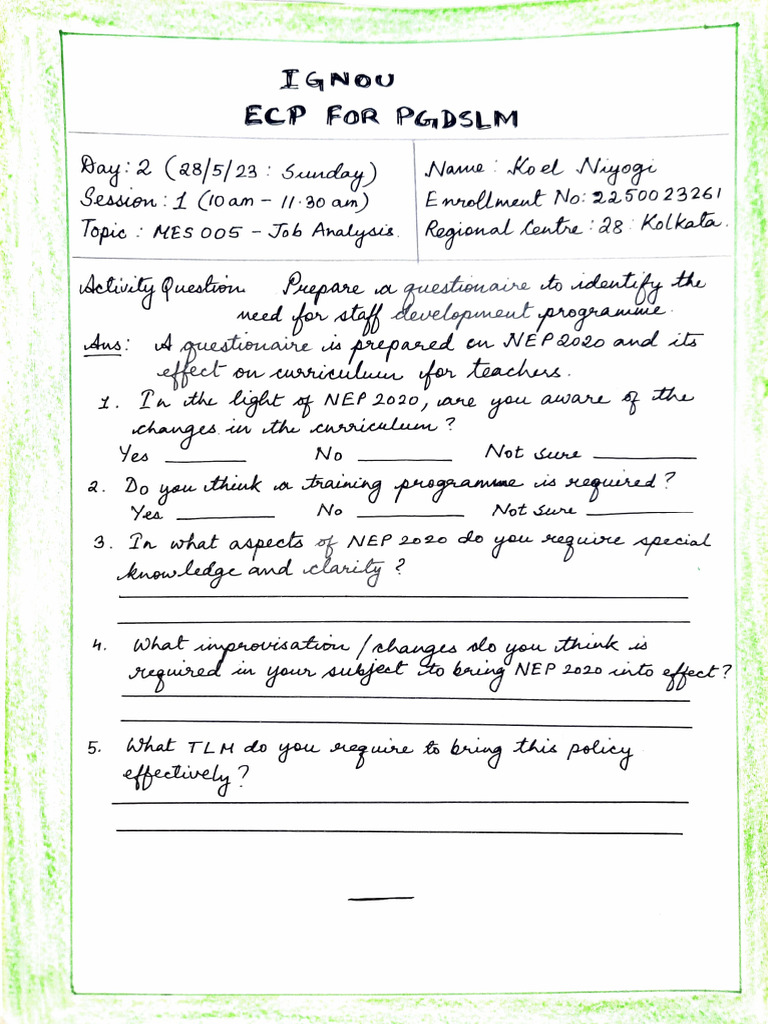 IGNOU
ECP FOR PGDSLM
Day: 2 (28/5/23 : Sunday)
Session: 1 (10 am - 11.30 am)
Topic : MES 005 - Job Analysis.
Name : Koel Niyogi
Enrollment No: 2250023261
Regional Centre : 28 : Kolkata.
Activity Question. Prepare a questionaire to identify the
need for staff development programme.
Ans: A questionaire is prepared on NEP 2020 and its
effect on curriculum for teachers.
1. In the light of NEP 2020, are you aware of the
changes in the curriculum ?
Yes ________ No ________ Not sure ________
2. Do you think a training programme is required ?
Yes ________ No ________ Not sure ________
3. In what aspects of NEP 2020 do you require special
knowledge and clarity ?
4. What improvisation / changes do you think is
required in your subject to bring NEP 2020 into effect ?
5. What TLM do you require to bring this policy
effectively ?